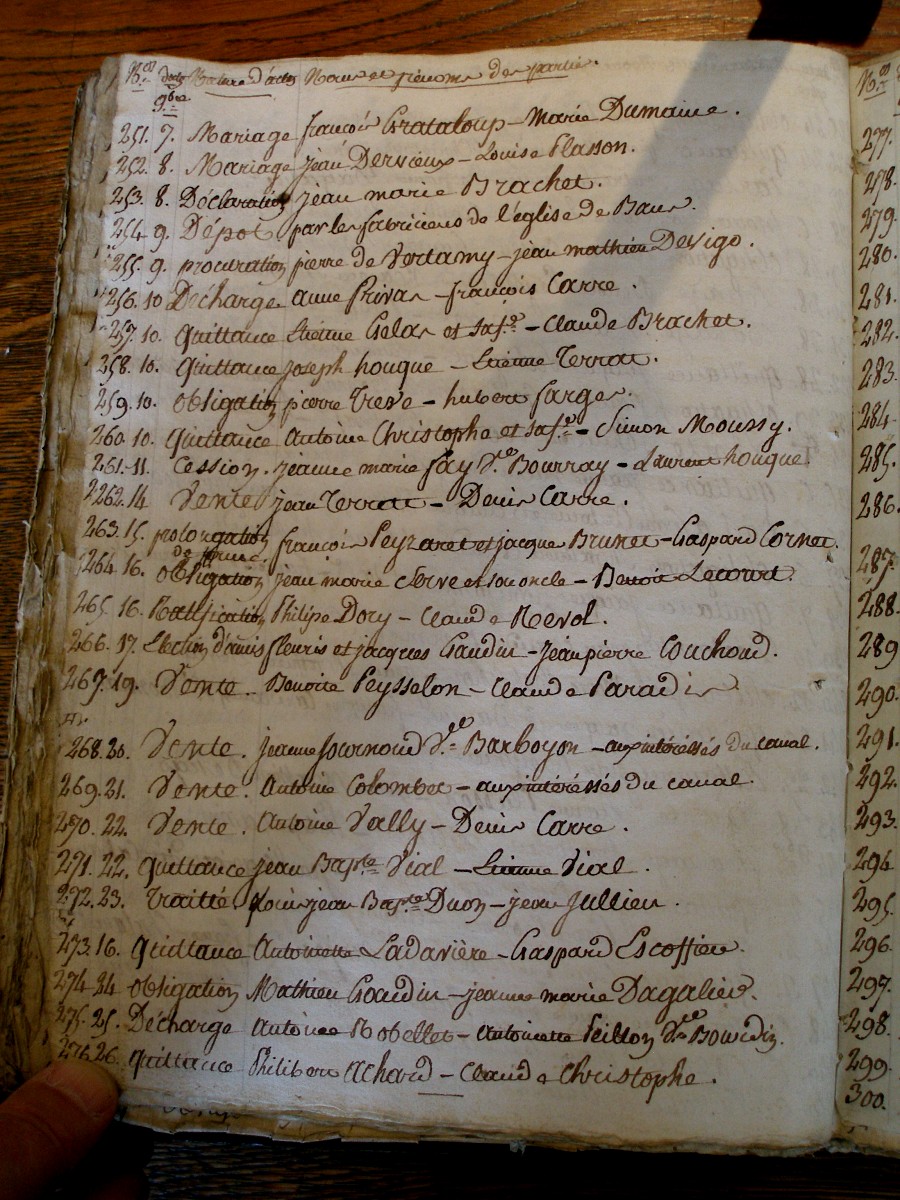 N.os dates Nature d'actes Noms et prénoms des parties.
9bre
251. 7. Mariage françois Grataloup - Marie Dumaine.
252. 8. Mariage jean Dervieux - Louise Plasson.
253. 8. Déclaration jean marie Brachet.
254. 9. Dépot par les fabriciens de l'église de Baur.
255. 9. procuration pierre de Vertamy - jean mathieu Devigo.
256. 10 Décharge anne Privas - françois Carre.
257. 10. Quittance Etienne Gelas et sa f.e - Claude Brachet.
258. 10. Quittance joseph houque - Etienne Terrat.
259. 10. obligation pierre Treve - hubert farges.
260. 10. Quittance Antoine Christophe et sa f.e - Simon Moussy.
261. 11. Cession. jeanne marie fay V.ve Bourray - Laurent houque.
262. 14 Vente jean Terrat - Denis Carre.
263. 15. prolongation françois Peyzaret et jacque Brunet - Gaspard Cornet.
de
264. 16. obligation jean marie Serve et son oncle - Benoit Lecourt.
265. 16. Ratification Philipe Dory - Claude Revol.
266. 17. Election d'amis fleuris et jacques Gaudin - jean pierre Couchoud.
267. 19. Vente. Benoite Peysselon - Claude Paradis
268. 20. Vente. jeanne Journoud V.ve Barboyon - aux intéréssés du canal.
269. 21. Vente. Antoine Colombet - aux intéréssés du canal.
270. 22. Vente. Antoine Vally - Denis Carre.
271. 22. Quittance jean Bap.te Vial - Etienne Vial.
272. 23. Traité. Louis jean Bap.te Duon - jean Jullien.
273. 16. Quittance Antoinette Ladavière - Gaspard Escoffier.
274. 24 obligation Mathieu Gaudin - jeanne marie Dagalier.
275. 25. Décharge Antoine Robellet - Antoinette Peillon V.ve Bourdin.
276. 26. Quittance Philibert Achard - Claude Christophe.
N.os
277.
278.
279.
280.
281.
282.
283.
284.
285.
286.
287.
288.
289
290.
291.
292.
293.
294
295.
296.
297.
298.
299.
300.